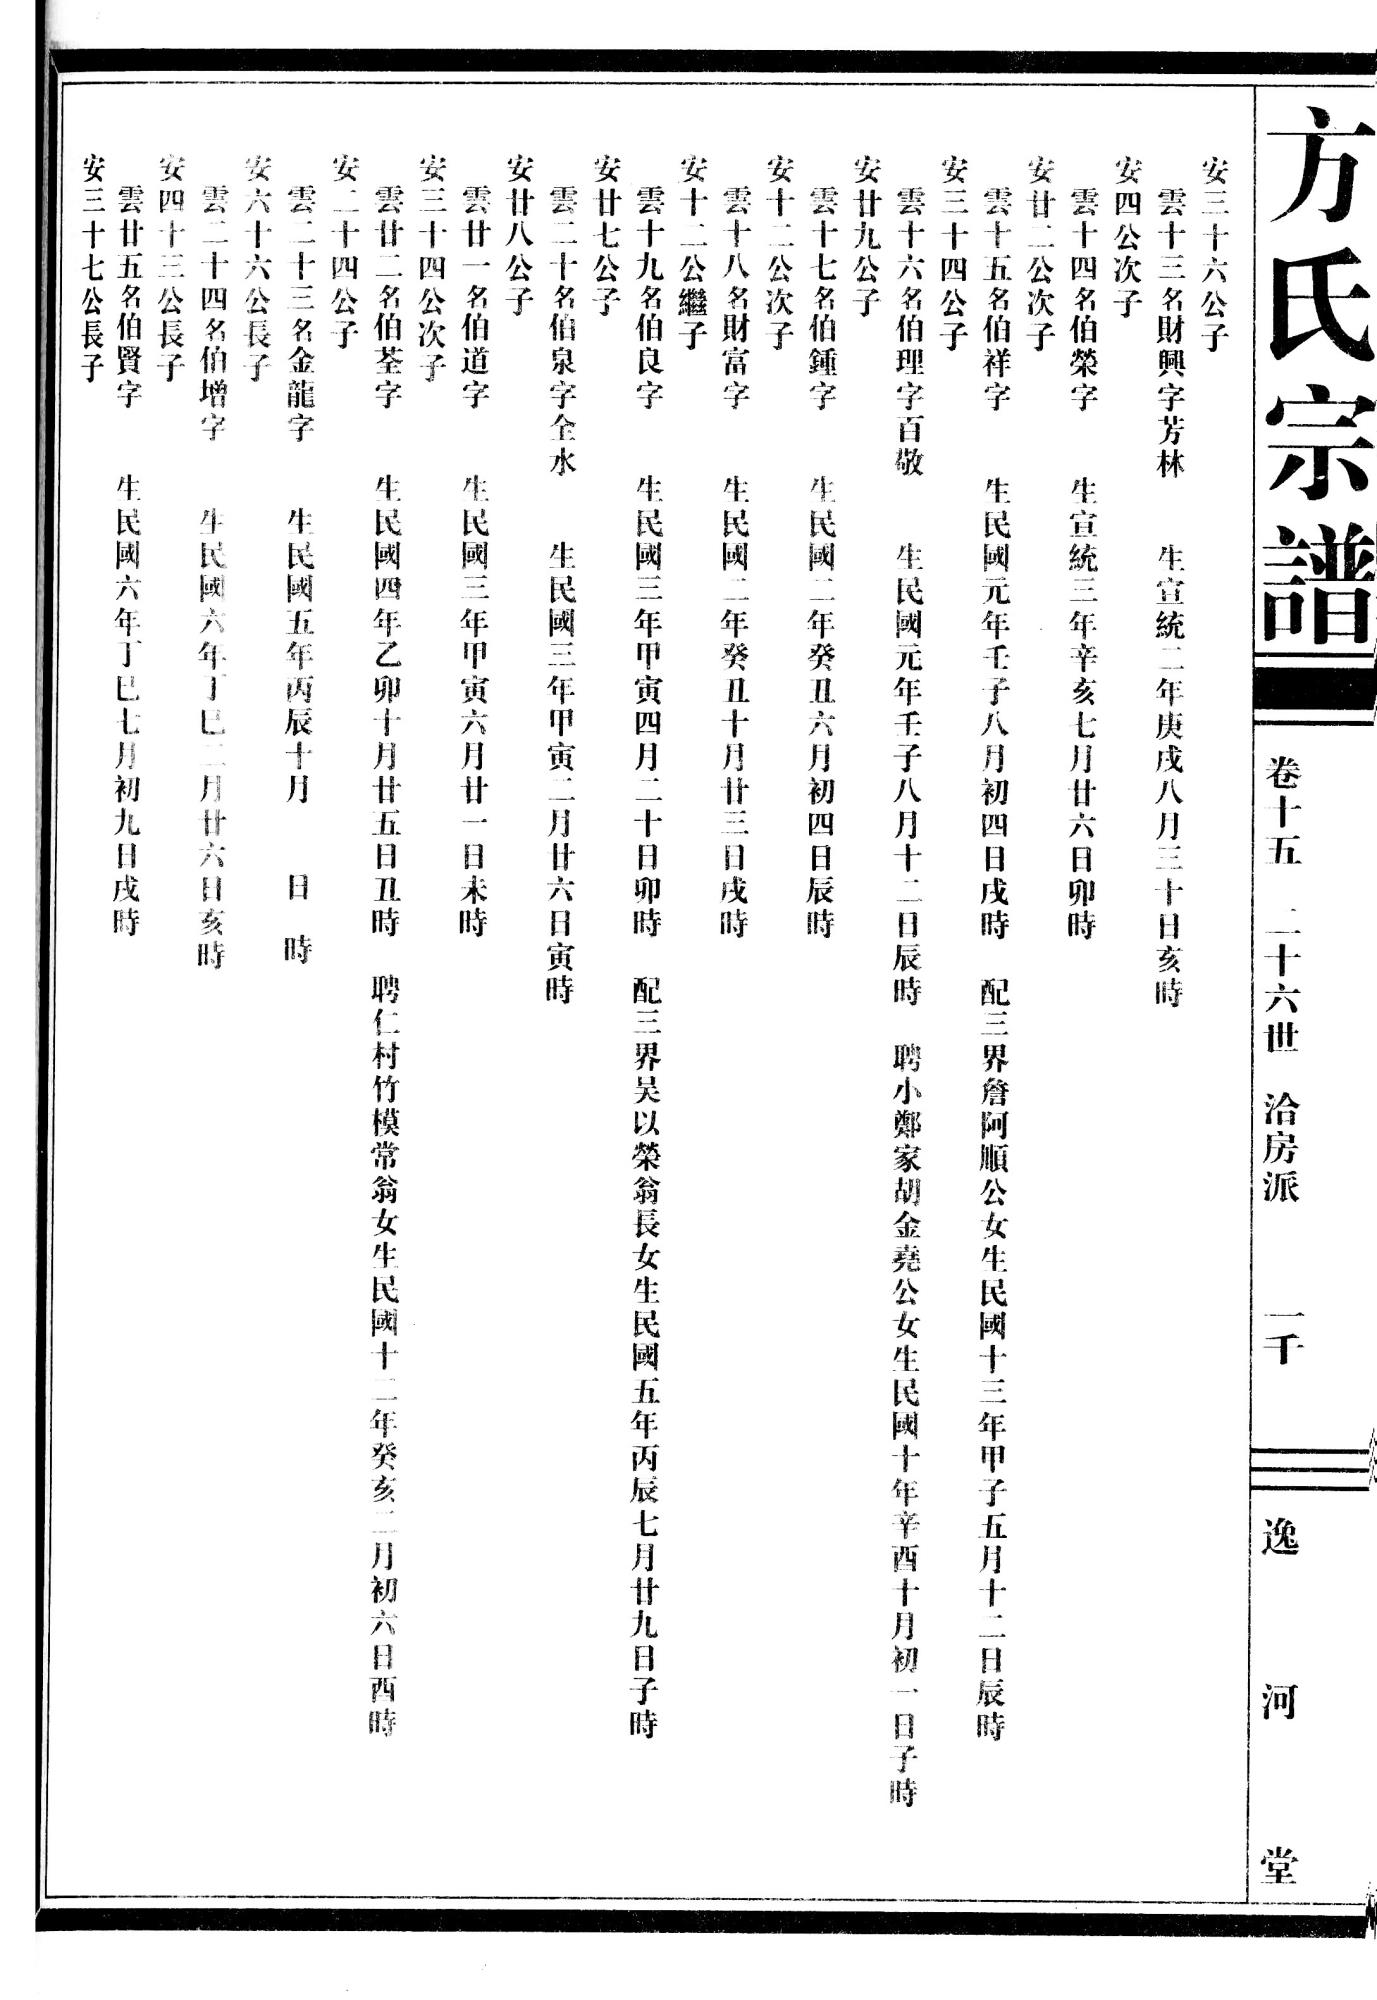 方氏宗譜
卷十五　二十六世　洽房派　一千
逸河堂
安三十六公子
雲十三名財興字芳林　生宣統二年庚戌八月三十日亥時
安四公次子
雲十四名伯榮字　生宣統三年辛亥七月廿六日卯時
安廿二公次子
雲十五名伯祥字　生民國元年壬子八月初四日戌時　配三界詹阿順公女生民國十三年甲子五月十二日辰時
安三十四公子
雲十六名伯理字百敬　生民國元年壬子八月十二日辰時　聘小鄭家胡金堯公女生民國十年辛酉十月初一日子時
安廿九公子
雲十七名伯鍾字　生民國二年癸丑六月初四日辰時
安十二公次子
雲十八名財富字　生民國二年癸丑十月廿三日戌時
安十二公繼子
雲十九名伯良字　生民國三年甲寅四月二十日卯時　配三界吴以榮翁長女生民國五年丙辰七月廿九日子時
安廿七公子
雲二十名伯泉字全水　生民國三年甲寅二月廿六日寅時
安廿八公子
雲廿一名伯道字　生民國三年甲寅六月廿一日未時
安三十四公次子
雲廿二名伯荃字　生民國四年乙卯十月廿五日丑時　聘仁村竹模常翁女生民國十二年癸亥二月初六日酉時
安二十四公子
雲二十三名金龍字　生民國五年丙辰十月　日　時
安六十六公長子
雲二十四名伯增字　生民國六年丁巳二月廿六日亥時
安四十三公長子
雲廿五名伯賢字　生民國六年丁巳七月初九日戌時
安三十七公長子